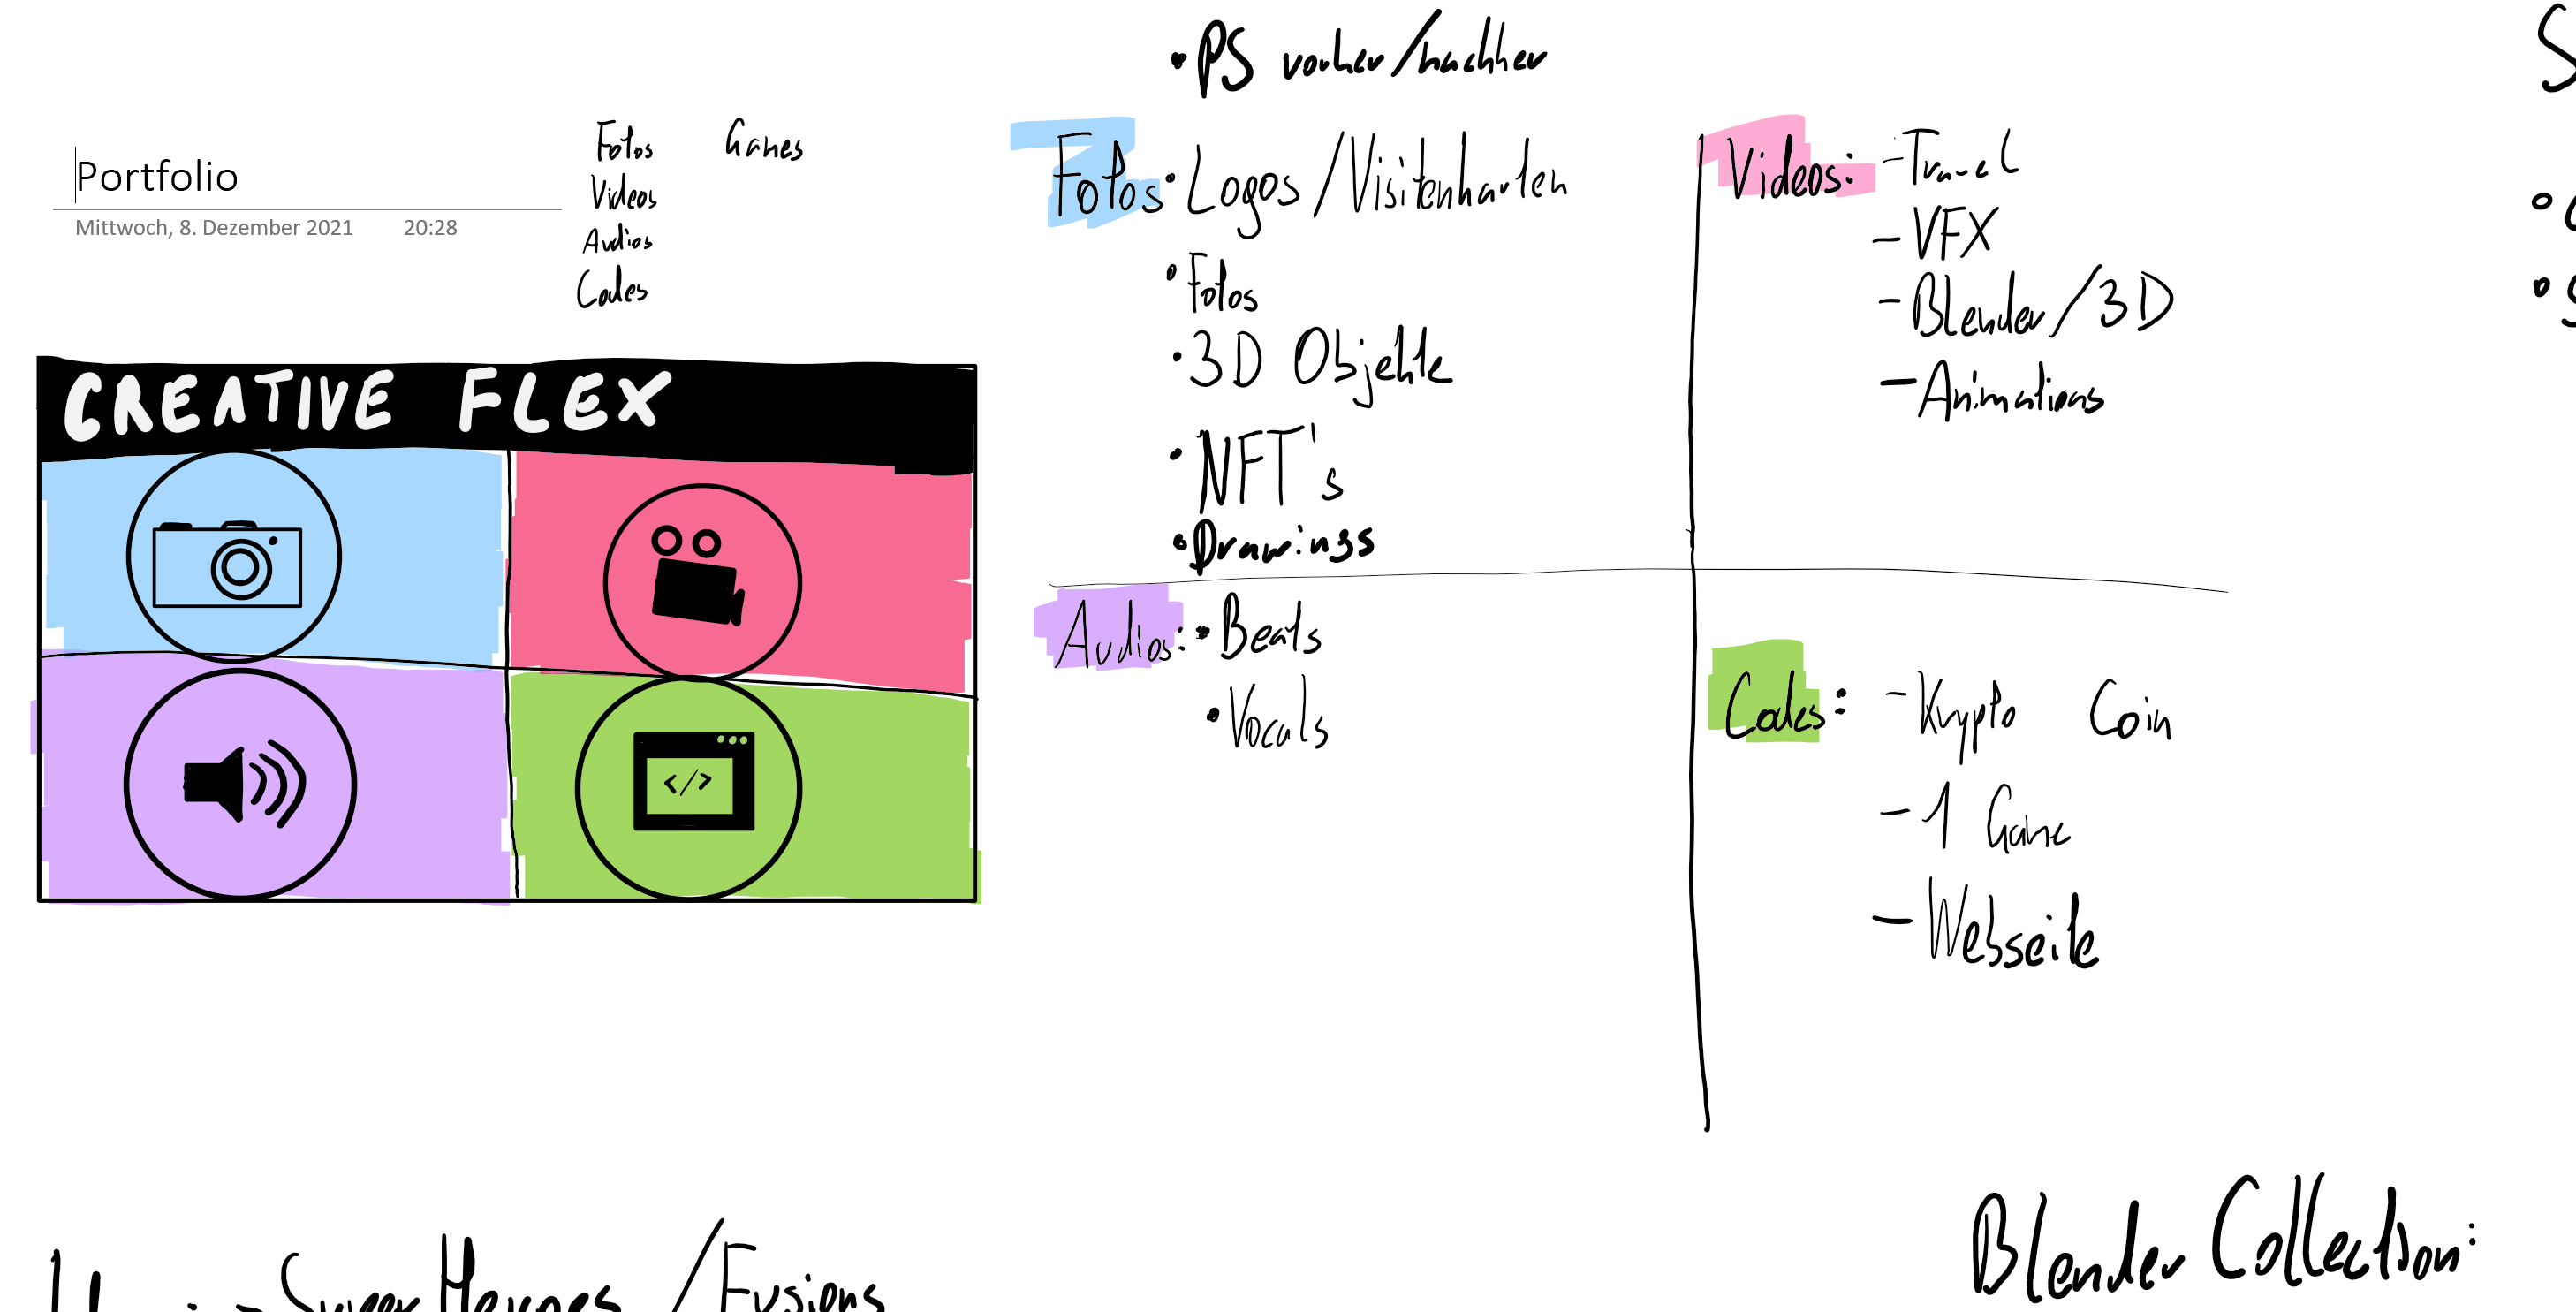 Portfolio
Mittwoch, 8. Dezember 2021 20:28
Fotos Games
Videos
Audios
Codes
CREATIVE FLEX
</>
• PS vorher/nachher
Fotos • Logos / Visitenkarten
• Fotos
• 3D Objekte
• NFT's
• Drawings
Videos: - Travel
- VFX
- Blender / 3D
- Animations
Audios: • Beats
• Vocals
Codes: - Krypto Coin
- 1 Game
- Webseite
Super Heroes / Fusions
Blender Collection: